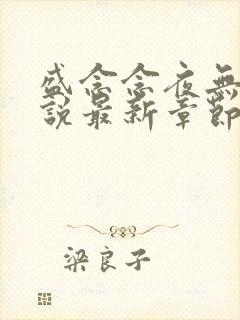 盛念念夜無
說最新章節
梁良子